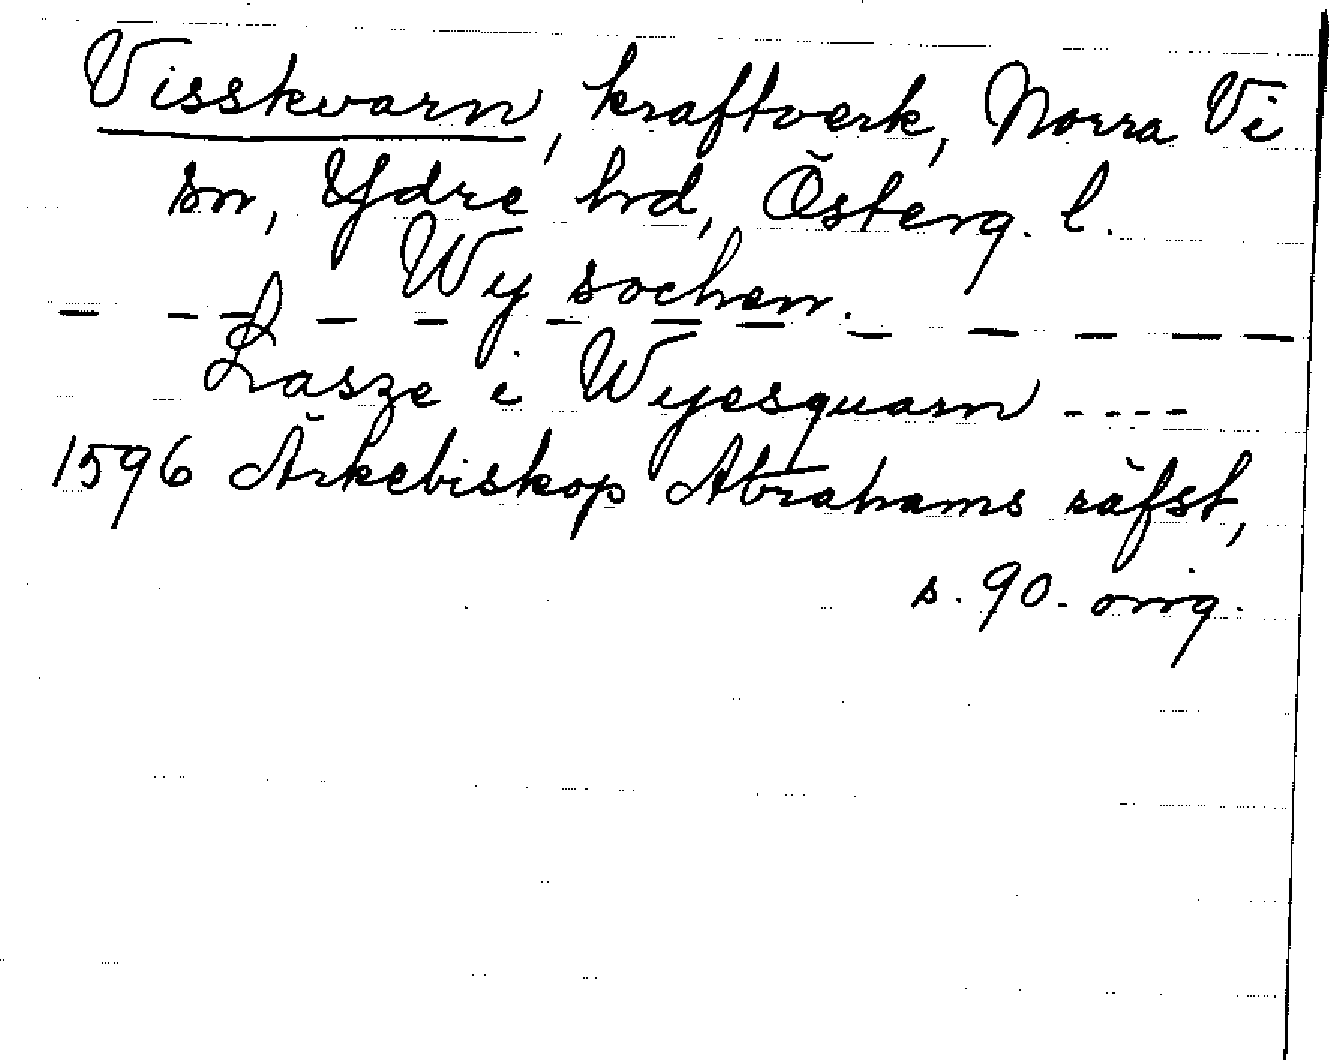 Visskvarn, kraftverk, Norra Vi
sn, Ydre hrd, Österg. l.
Wy sochen.
Lasze i Wyesquarn ----
1596 Ärkebiskop Abrahams räfst,
s. 90. orig.